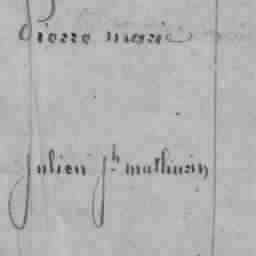 Pierre marie
julien jh mathurin